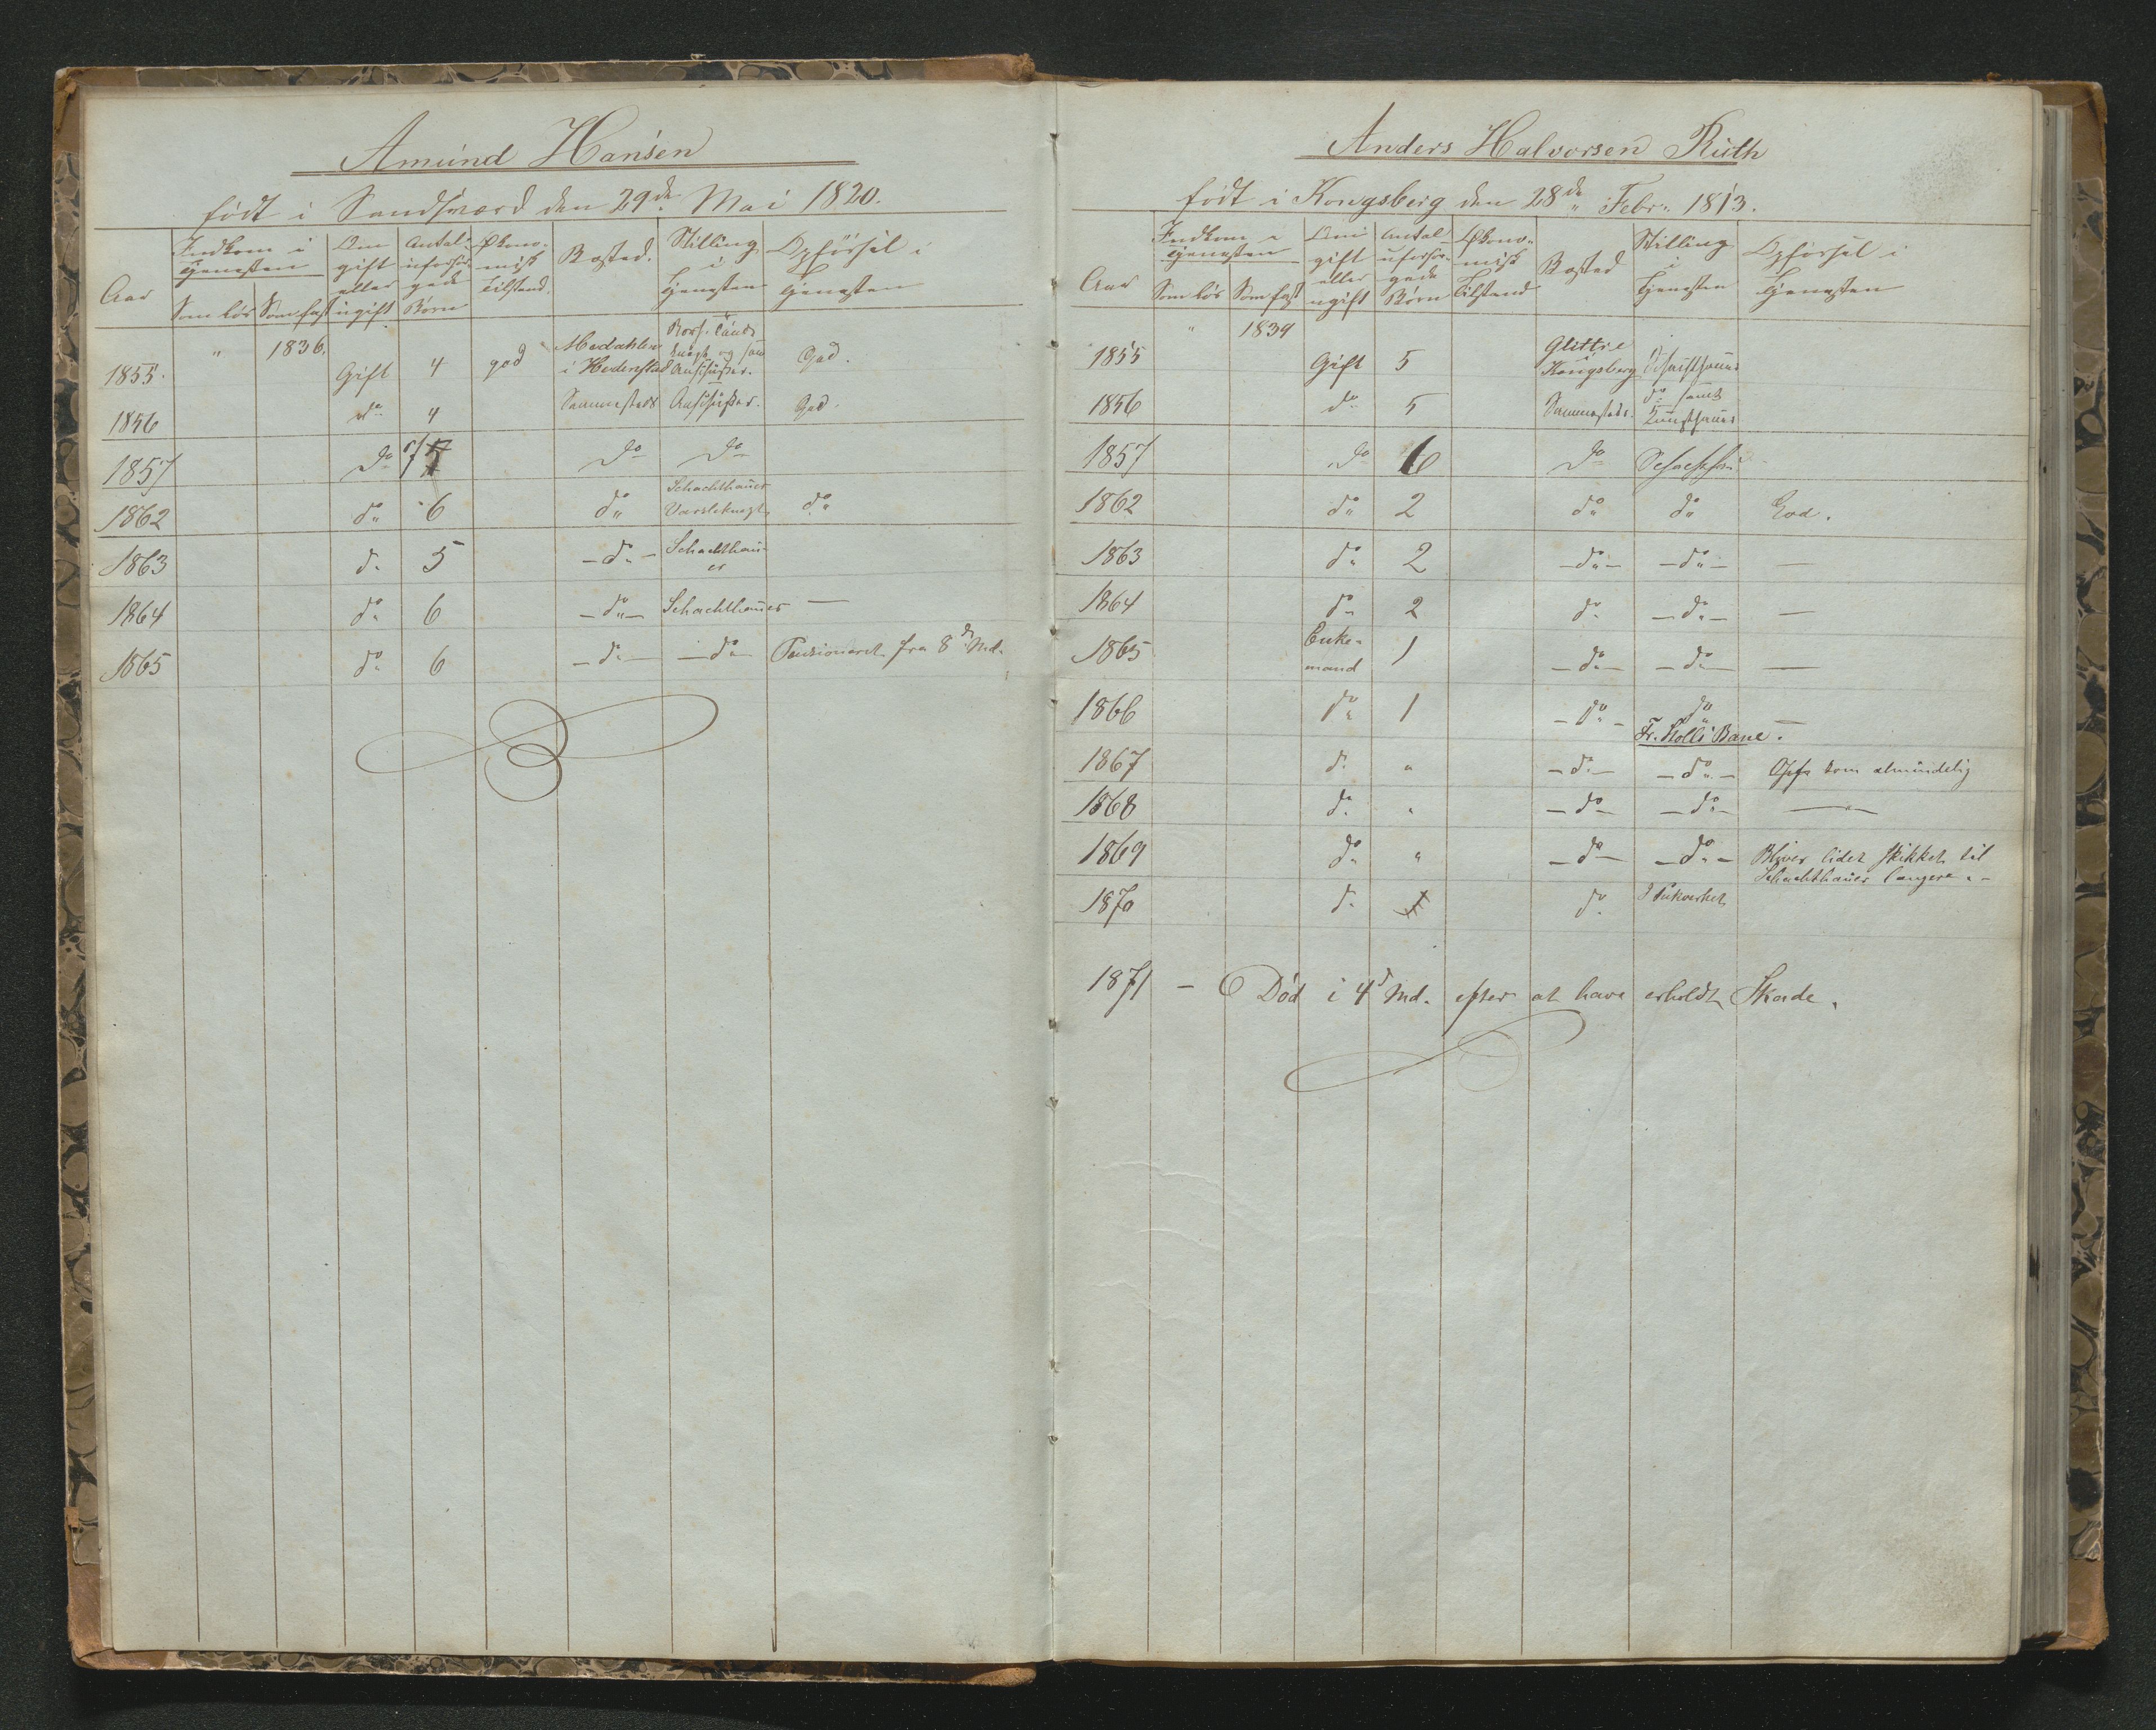 Amund Hansen
født i Sandsværd den 29de Mai 1820.
Aar
Indkom i Tjenesten
Som løs
Som fast
Om gift eller ugift
Antal uforsørgede Børn
Økonomisk Tilstand.
Bosted.
Stilling i Tjenesten
Opførsel i Tjenesten
1855. " 1836. Gift 4 god Medahlen i Hedenstad og Ausschuser. God.
1856 do 4 Sammesteds Ausschuser. God.
1857 do do do
1862 do 6 do Schachthauer do
1863 do 5 - do - Schachthauer
1864 do 6 - do - Schachthauer —
1865 do 6 - do - - do - Pensioneret fra 8de Md.
Anders Halvorsen Ruth
født i Kongsberg den 28de Febr. 1813.
Aar
Indkom i Tjenesten
Som løs
Som fast
Om gift eller ugift
Antal uforsørgede Børn
Økonomisk Tilstand
Bosted
Stilling i Tjenesten
Opførsel i Tjenesten
1855 " 1839 Gift 5 Glittre Kongsberg Schachthauer
1856 do 5 Sammesteds. do samt Kunsthauer
1857 do 6 do Schachth.
1862 do 2 do do God.
1863 do 2 - do - - do - —
1864 do 2 do - do - —
1865 Enkemand 1 - do - - do - —
1866 do 1 - do - do —
Fr. Kolls Bane.
1867 do " - do - - do - Opfr som almindelig
1868 do " - do - - do - —
1869 do " - do - - do - Bliver lidet skikket til
Schachthauer længere. -
1870 do do I Pukverket
1871 - Død i 4de Md. efter at have erholdt Skade.